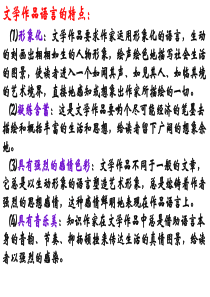 文学作品语言的特点：
⑴形象化：文学作品要求作家运用形象化的语言，生动
的刻画出栩栩如生的人物形象，绘声绘色地描写社会生活
的图景，使读者进入一个如闻其声、如见其人、如临其境
的艺术境界，直接地感知或想象出作家所描绘的一切。
⑵凝练含蓄：这是文学作品要用尽可能经济的笔墨去
描绘和概括丰富的生活和思想，给读者留下广阔的想象余
地。
⑶具有强烈的感情色彩：文学作品不同于一般的文章，
它总是以生动形象的语言塑造艺术形象，总是熔铸着作者
强烈的思想感情，这种感情鲜明地表现在作品语言上。
⑷具有音乐美：知识作家在文学作品中总是借助语言本
身的音韵、节奏、抑扬顿挫来传达生活的真情图景，给读
者以强烈的感染。